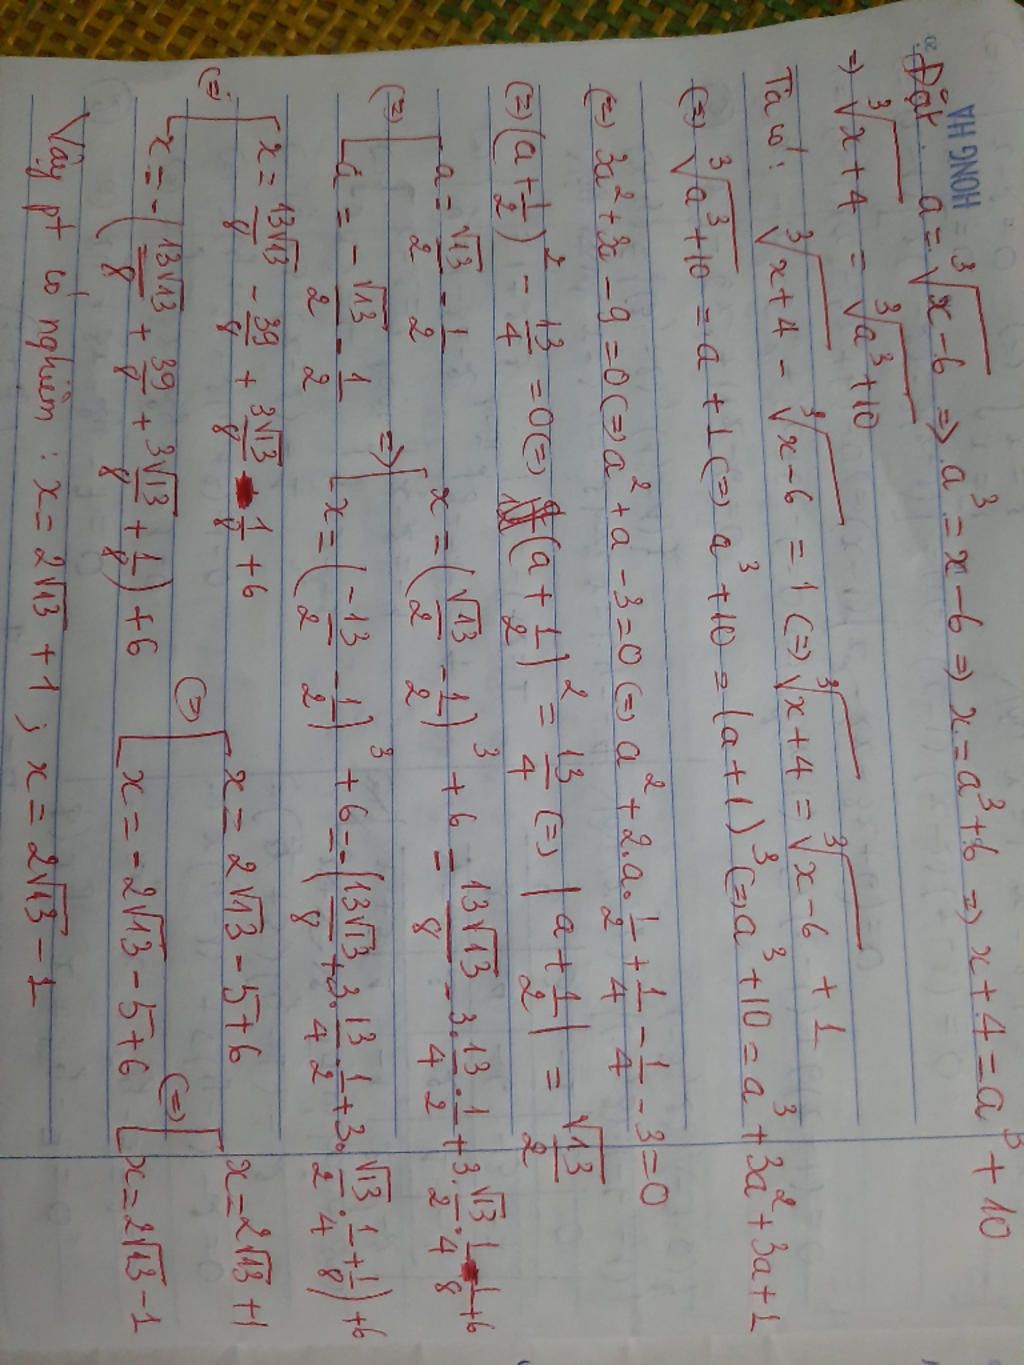 HONG HA
Đặt a = ∛(x-6) => a³ = x-6 => x = a³+6 => x+4 = a³+10
=> ∛(x+4) = ∛(a³+10)
Ta có: ∛(x+4) - ∛(x-6) = 1 (=) ∛(x+4) = ∛(x-6) + 1
(=) ∛(a³+10) = a+1 (=) a³+10 = (a+1)³ (=) a³+10 = a³+3a²+3a+1
(=) 3a²+3a-9=0 (=) a²+a-3=0 (=) a²+2.a.1/2+1/4-1/4-3=0
(=) (a+1/2)² - 13/4 = 0 (=) (a+1/2)² = 13/4 (=) |a+1/2| = √13/2
(=) [ a = √13/2 - 1/2 => [ x = (√13/2 - 1/2)³ + 6 = 13√13/8 - 3.13/4.1/2 + 3.√13/2.1/4 - 1/8 + 6
a = -√13/2 - 1/2 x = (-13/2 - 1/2)³ + 6 = -(13√13/8 + 3.13/4.1/2 + 3.√13/2.1/4 + 1/8) + 6
(=) [ x = 13√13/8 - 39/8 + 3√13/8 - 1/8 + 6 (=) [ x = 2√13 - 5 + 6 (=) [ x = 2√13 + 1
x = -(13√13/8 + 39/8 + 3√13/8 + 1/8) + 6 x = -2√13 - 5 + 6 x = 2√13 - 1
Vậy pt có nghiệm : x = 2√13 + 1 ; x = 2√13 - 1